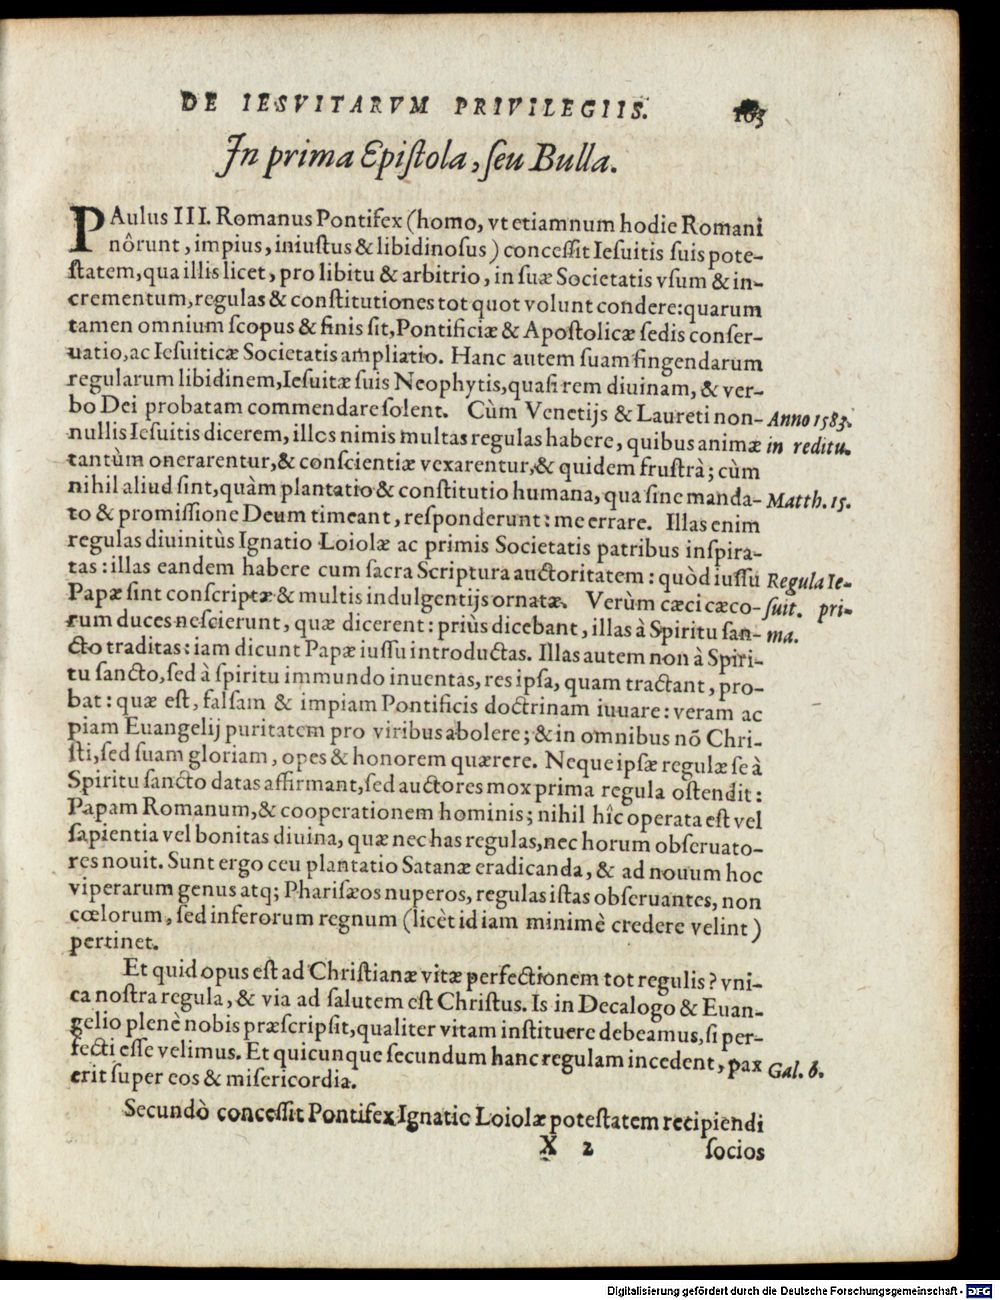 DE IESVITARVM PRIVILEGIIS. 163
In prima Epiſtola, ſeu Bulla.
PAulus III. Romanus Pontifex (homo, vt etiamnum hodie Romani
nôrunt, impius, iniuſtus & libidinoſus) conceſſit Ieſuitis ſuis pote-
ſtatem, qua illis licet, pro libitu & arbitrio, in ſuæ Societatis vſum & in-
crementum, regulas & conſtitutiones tot quot volunt condere: quarum
tamen omnium ſcopus & finis ſit, Pontificiæ & Apoſtolicæ ſedis conſer-
uatio, ac Ieſuiticæ Societatis ampliatio. Hanc autem ſuam fingendarum
regularum libidinem, Ieſuitæ ſuis Neophytis, quaſi rem diuinam, & ver-
bo Dei probatam commendare ſolent. Cùm Venetijs & Laureti non- Anno 1583.
nullis Ieſuitis dicerem, illos nimis multas regulas habere, quibus animæ in reditu.
tantùm onerarentur, & conſcientiæ vexarentur, & quidem fruſtrà; cùm
nihil aliud ſint, quàm plantatio & conſtitutio humana, qua ſine manda- Matth. 15.
to & promiſſione Deum timeant, reſponderunt: me errare. Illas enim
regulas diuinitùs Ignatio Loiolæ ac primis Societatis patribus inſpira-
tas: illas eandem habere cum ſacra Scriptura auctoritatem: quòd iuſſu Regula Ie-
Papæ ſint conſcriptæ & multis indulgentijs ornatæ. Verùm cæci cæco- ſuit. pri-
rum duces neſcierunt, quæ dicerent: priùs dicebant, illas à Spiritu ſan- ma.
cto traditas: iam dicunt Papæ iuſſu introductas. Illas autem non à Spiri-
tu ſancto, ſed à ſpiritu immundo inuentas, res ipſa, quam tractant, pro-
bat: quæ eſt, falſam & impiam Pontificis doctrinam iuuare: veram ac
piam Euangelij puritatem pro viribus abolere; & in omnibus nõ Chri-
ſti, ſed ſuam gloriam, opes & honorem quærere. Neque ipſæ regulæ ſe à
Spiritu ſancto datas affirmant, ſed auctores mox prima regula oſtendit:
Papam Romanum, & cooperationem hominis; nihil hîc operata eſt vel
ſapientia vel bonitas diuina, quæ nec has regulas, nec horum obſeruato-
res nouit. Sunt ergo ceu plantatio Satanæ eradicanda, & ad nouum hoc
viperarum genus atq; Phariſæos nuperos, regulas iſtas obſeruantes, non
cœlorum, ſed inferorum regnum (licèt id iam minimè credere velint)
pertinet.
Et quid opus eſt ad Chriſtianæ vitæ perfectionem tot regulis? vni-
ca noſtra regula, & via ad ſalutem eſt Chriſtus. Is in Decalogo & Euan-
gelio plenè nobis præſcripſit, qualiter vitam inſtituere debeamus, ſi per-
fecti eſſe velimus. Et quicunque ſecundum hanc regulam incedent, pax Gal. 6.
erit ſuper eos & miſericordia.
Secundò conceſſit Pontifex Ignatio Loiolæ poteſtatem recipiendi
X 2 ſocios
Digitalisierung gefördert durch die Deutsche Forschungsgemeinschaft - DFG